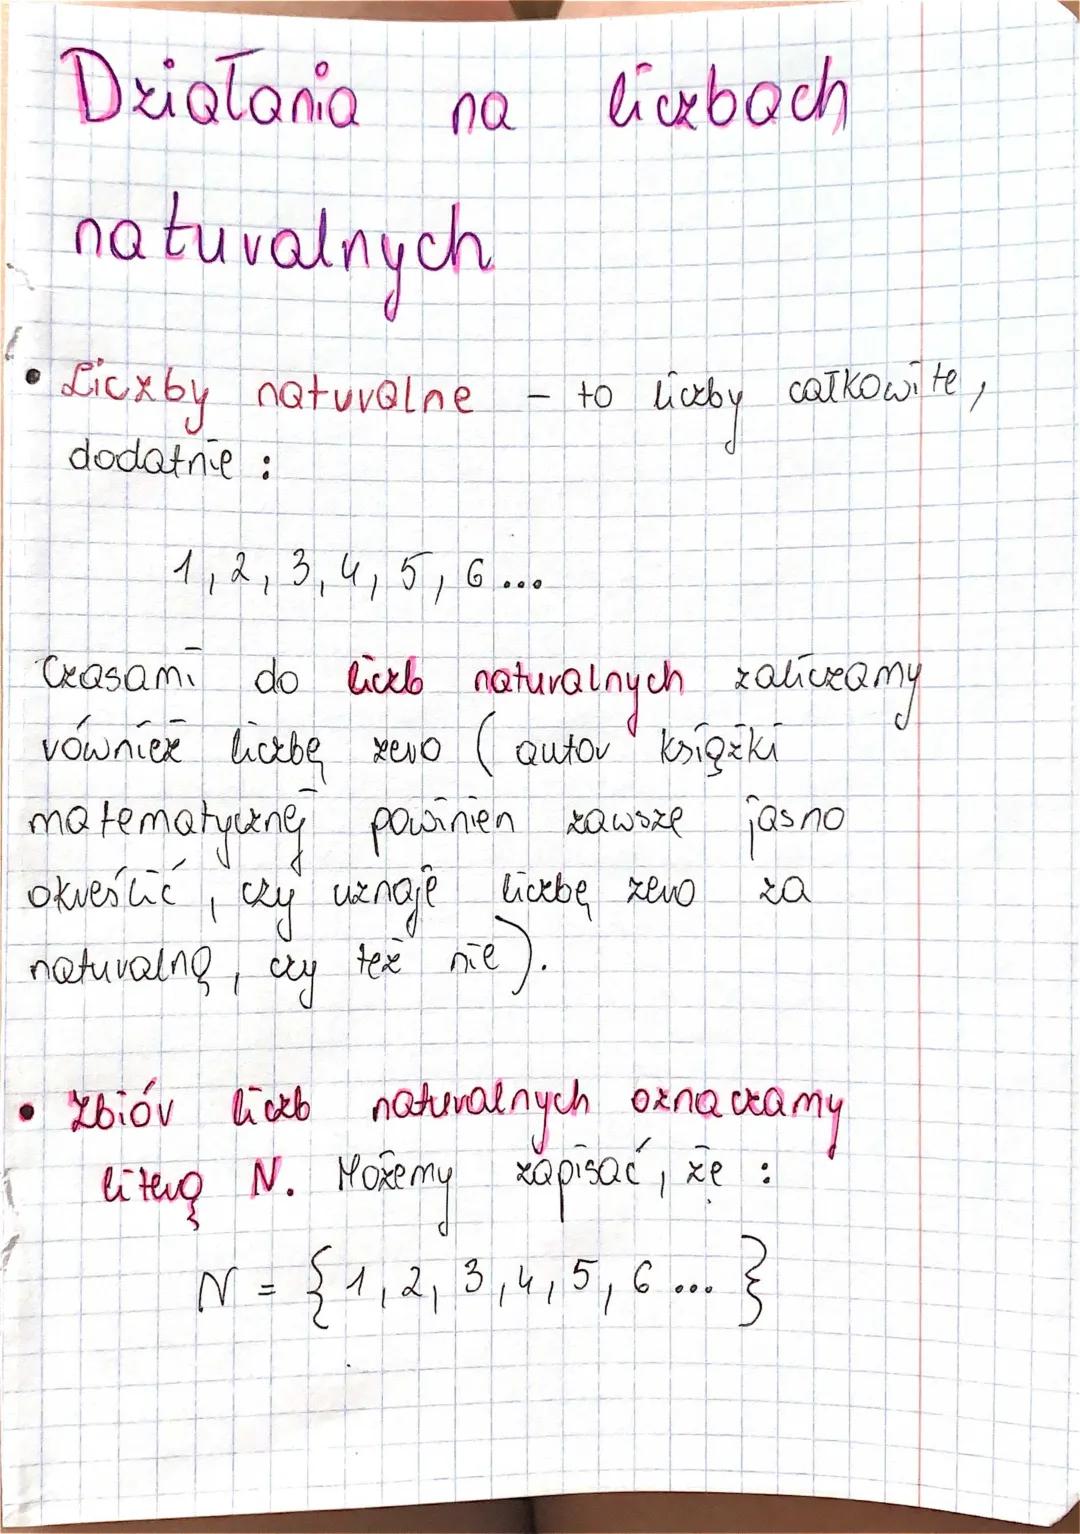 Działania na liczbach
naturalnych
• Liczby naturalne - to liczby całkowite,
dodatnie :
1, 2, 3, 4, 5, 6 ...
Czasami do liczb naturalnych zaliczamy
również liczbę zero ( autor książki
matematycznej powinien zawsze jasno
określić, czy uznaje liczbę zero za
naturalną, czy też nie).
• Zbiór liczb naturalnych oznaczamy
literą N. Możemy zapisać, że :
N = { 1, 2, 3, 4, 5, 6 ... }